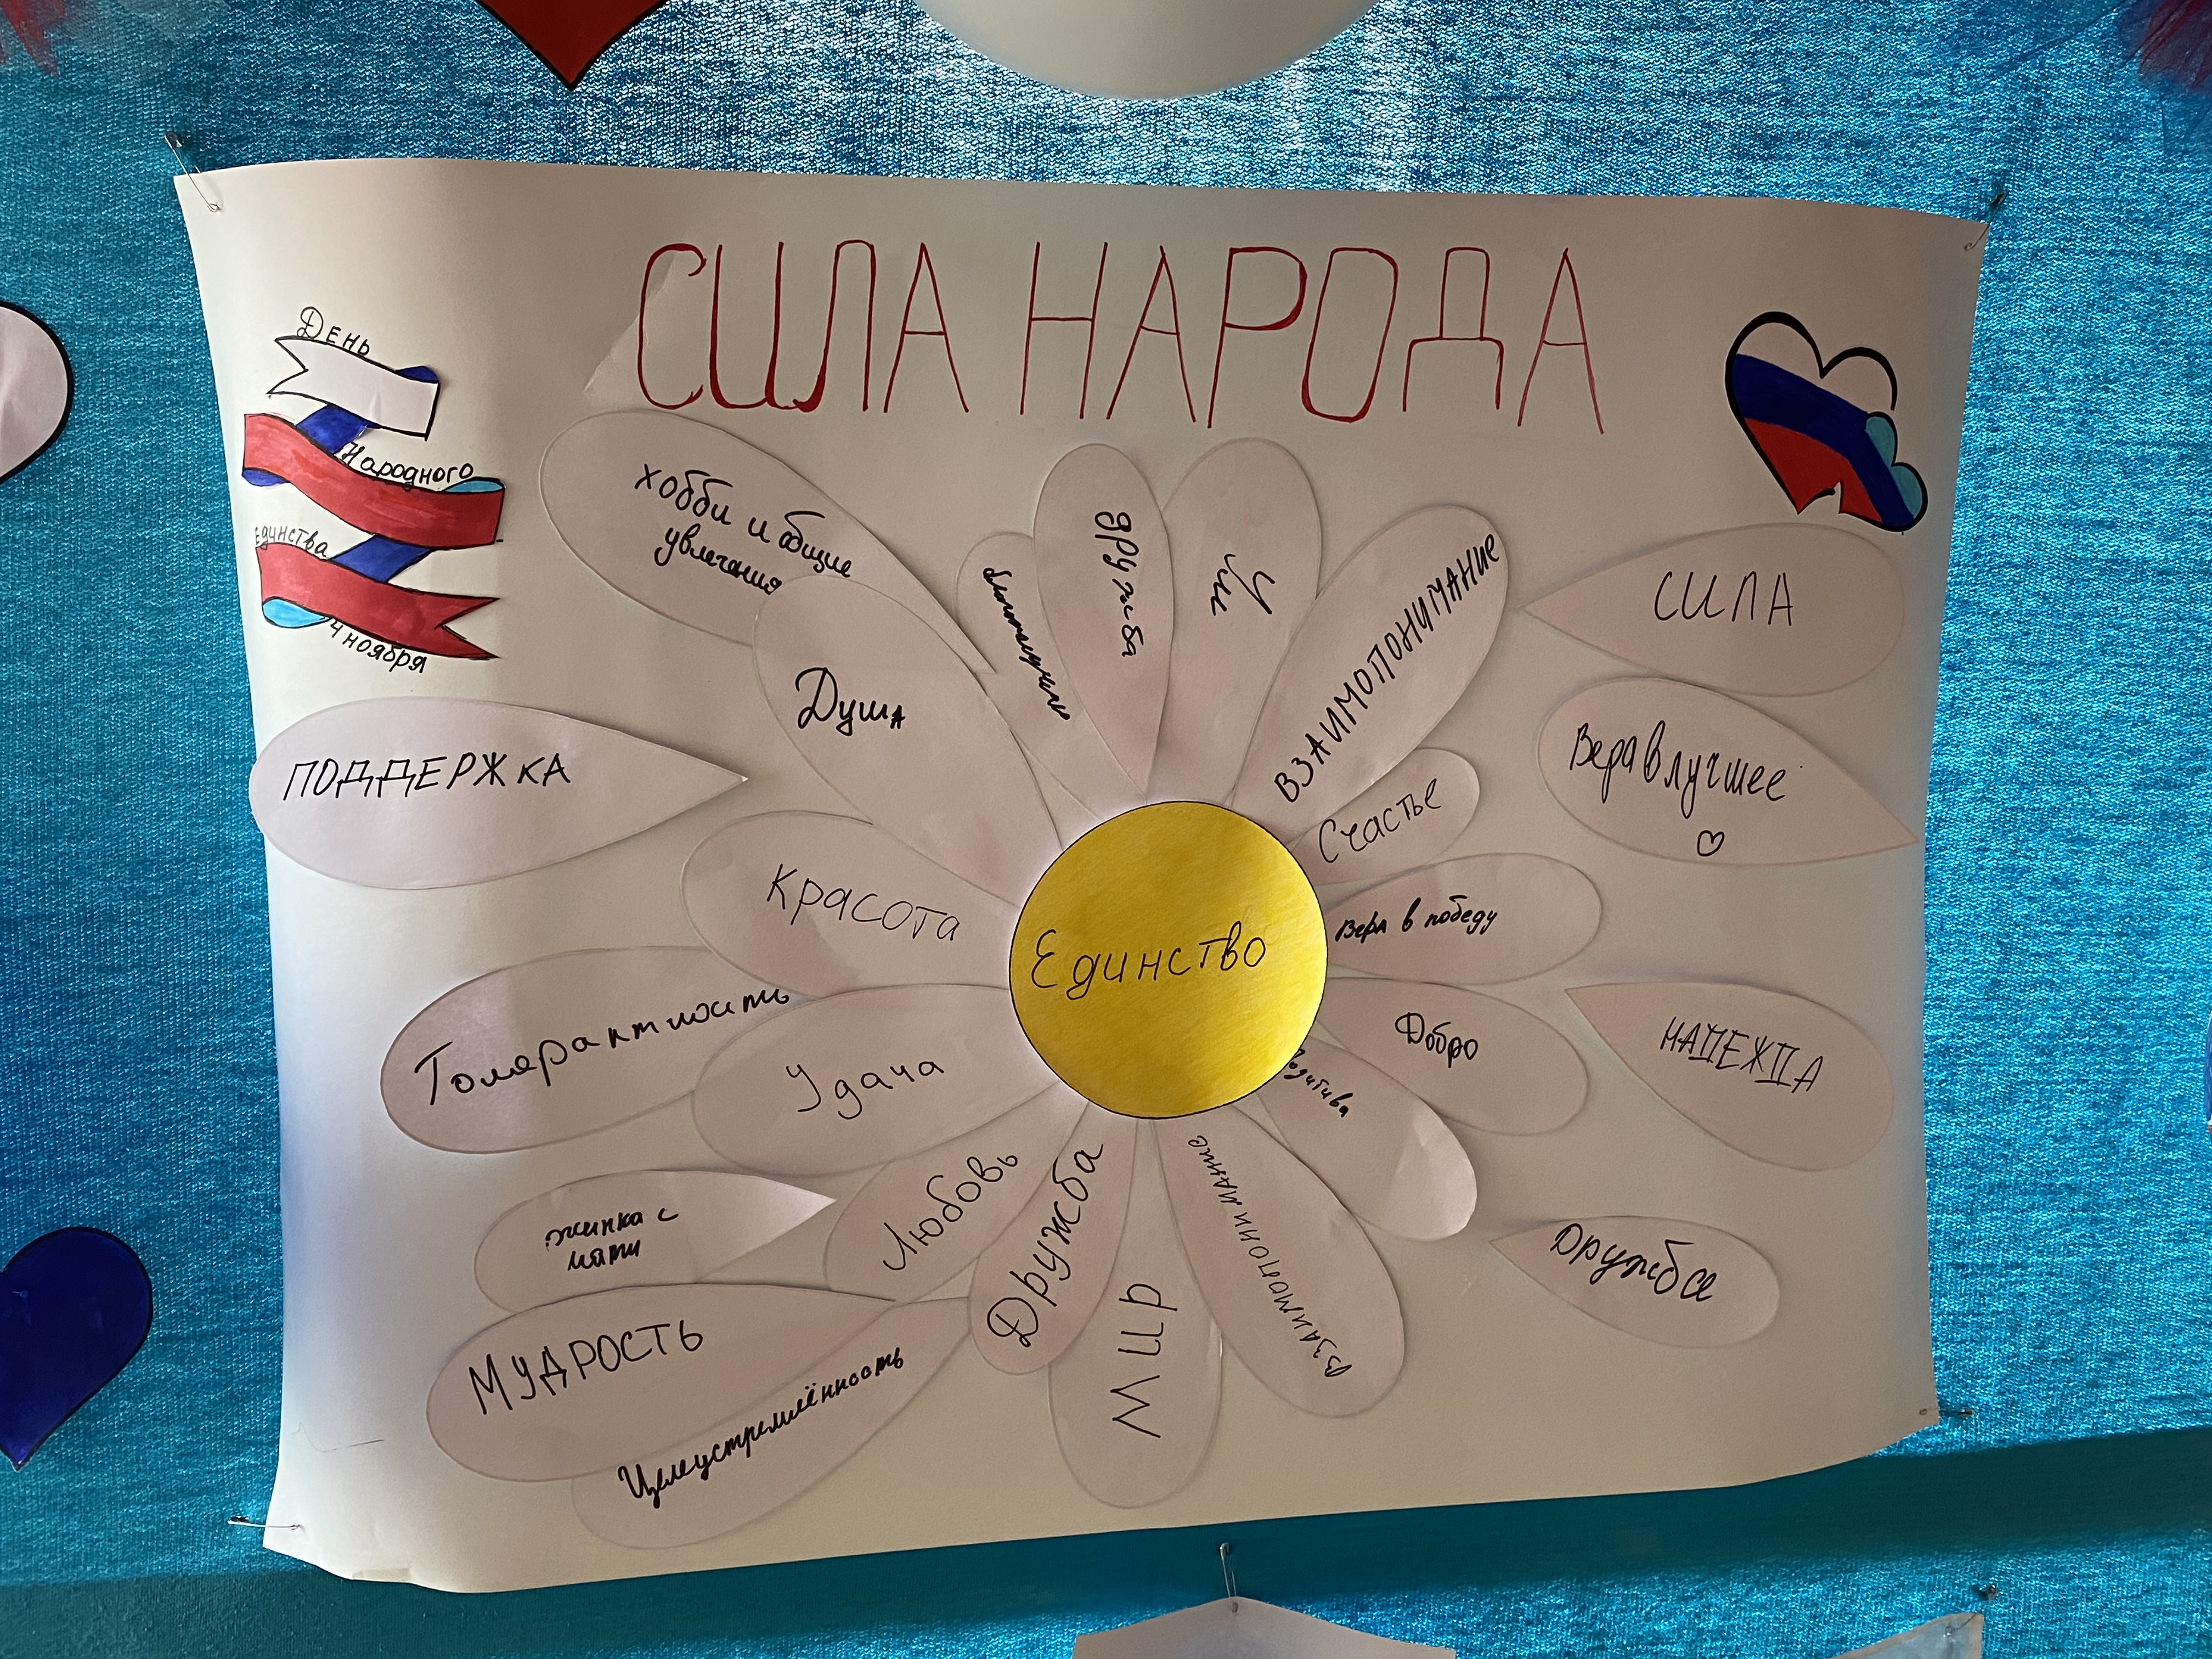 СИЛА НАРОДА
День
Народного
Единства
4 ноября
хобби и общие
увлечения
дружба
Ум
ВЗАИМОПОНИМАНИЕ
СИЛА
Душа
Вера в лучшее
ПОДДЕРЖКА
Счастье
Красота
Вера в победу
Единство
Толерактность
Удача
Добро
НАДЕЖДА
позитива
Любовь
Дружба
Мир
ВЗАИМОПОНИМАНИЕ
Дружба
жинка с
мяти
МУДРОСТЬ
Целеустремлённость